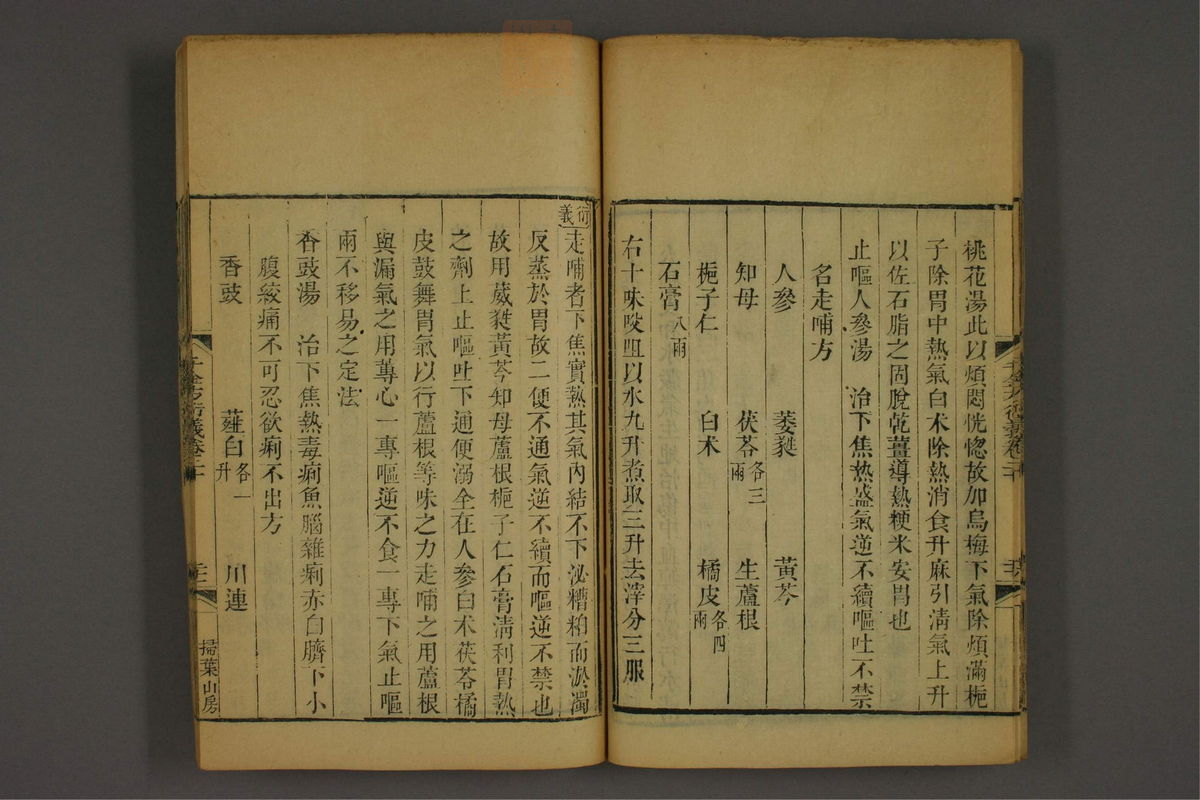 桃花湯此以煩悶恍惚故加烏梅下氣除煩滿梔
子除胃中熱氣白术除熱消食升麻引淸氣上升
以佐石脂之固脫乾薑導熱粳米安胃也
止嘔人參湯　治下焦熱盛氣逆不續嘔吐不禁
名走哺方
人參　萎蕤　黃芩
知母　茯苓各三兩　生蘆根
梔子仁　白术　橘皮各四兩
石膏八兩
右十味㕮咀以水九升煮取三升去滓分三服
衍義走哺者下焦實熱其氣內結不下泌糟粕而淤濁
反蒸於胃故二便不通氣逆不續而嘔逆不禁也
故用葳蕤黃芩知母蘆根梔子仁石膏淸利胃熱
之劑上止嘔吐下通便溺全在人參白术茯苓橘
皮鼓舞胃氣以行蘆根等味之力走哺之用蘆根
與漏氣之用蓴心一專嘔逆不食一專下氣止嘔
兩不移易之定法
香豉湯　治下焦熱毒痢魚腦雜痢赤白臍下小
腹絞痛不可忍欲痢不出方
香豉　薤白各一升　川連
千金方衍義卷二十
掃葉山房